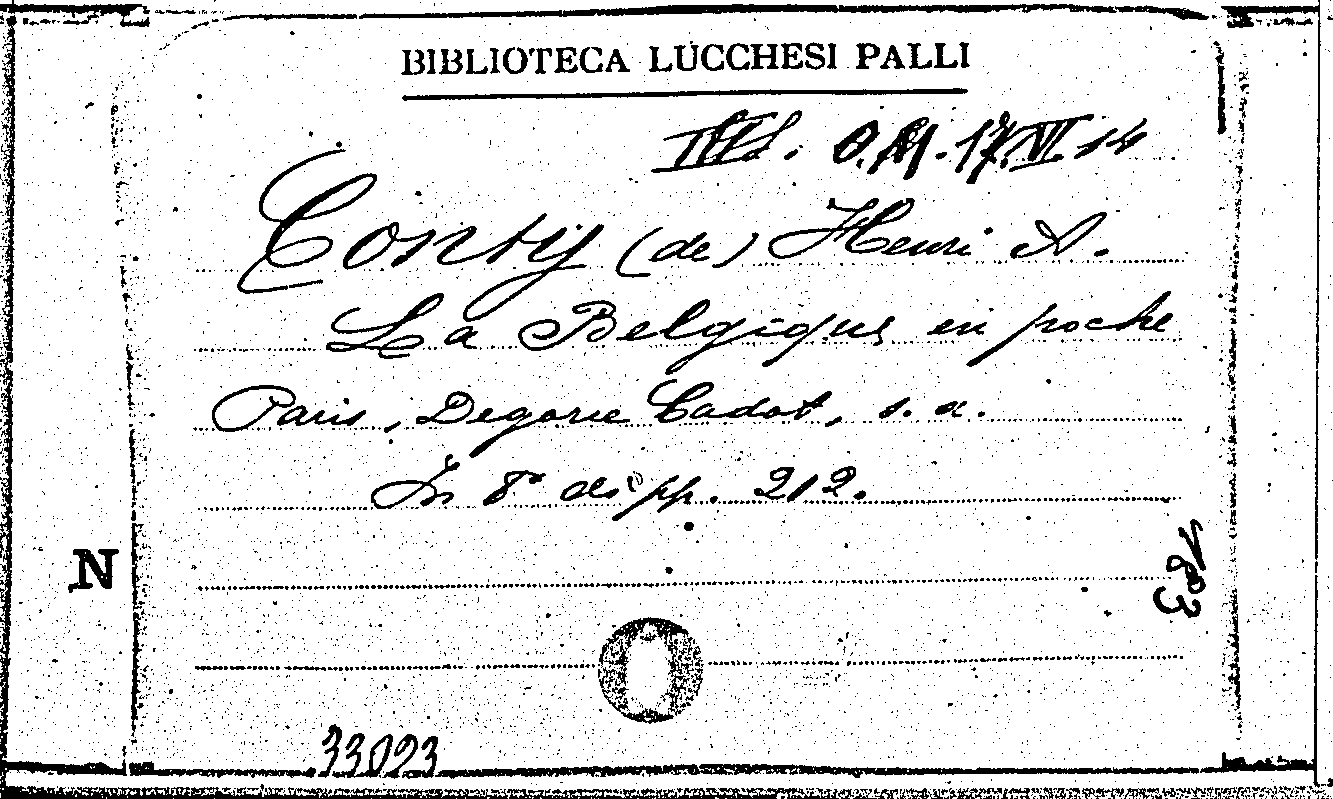 BIBLIOTECA LUCCHESI PALLI
17.VI.14
Conty (de) Henri A.
La Belgique en poche
Paris, Degorce Cadot, s. a.
In 8º di pp. 212.
N
1803
33023